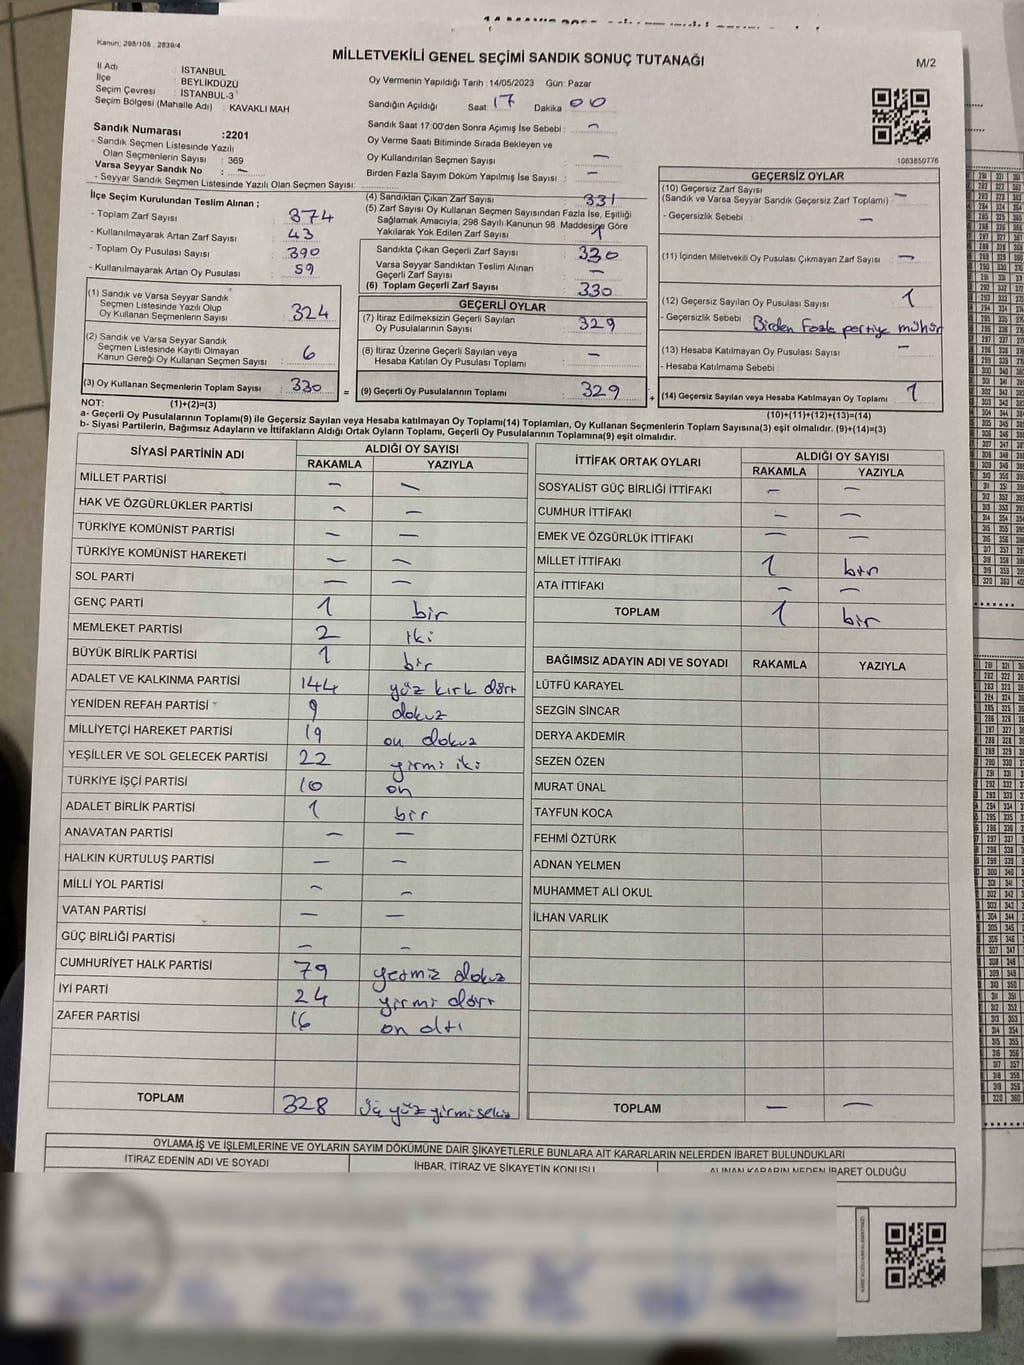 Kanun: 298/105 , 2839/4
MİLLETVEKİLİ GENEL SEÇİMİ SANDIK SONUÇ TUTANAĞI
M/2
İl Adı : İSTANBUL
İlçe : BEYLİKDÜZÜ
Seçim Çevresi : İSTANBUL-3
Seçim Bölgesi (Mahalle Adı) : KAVAKLI MAH
Oy Vermenin Yapıldığı Tarih : 14/05/2023 Gün: Pazar
Sandığın Açıldığı Saat: 17 Dakika 00
Sandık Saat 17:00'den Sonra Açımış İse Sebebi : –
Oy Verme Saati Bitiminde Sırada Bekleyen ve
Oy Kullandırılan Seçmen Sayısı : –
Birden Fazla Sayım Döküm Yapılmış İse Sayısı : –
1083850776
Sandık Numarası :2201
- Sandık Seçmen Listesinde Yazılı
Olan Seçmenlerin Sayısı : 369
Varsa Seyyar Sandık No : –
- Seyyar Sandık Seçmen Listesinde Yazılı Olan Seçmen Sayısı:
İlçe Seçim Kurulundan Teslim Alınan ;
- Toplam Zarf Sayısı : 374
- Kullanılmayarak Artan Zarf Sayısı : 43
- Toplam Oy Pusulası Sayısı : 390
- Kullanılmayarak Artan Oy Pusulası : 59
(1) Sandık ve Varsa Seyyar Sandık
Seçmen Listesinde Yazılı Olup
Oy Kullanan Seçmenlerin Sayısı : 324
(2) Sandık ve Varsa Seyyar Sandık
Seçmen Listesinde Kayıtlı Olmayan
Kanun Gereği Oy Kullanan Seçmen Sayısı : 6
(3) Oy Kullanan Seçmenlerin Toplam Sayısı : 330 =
(4) Sandıktan Çıkan Zarf Sayısı : 331
(5) Zarf Sayısı Oy Kullanan Seçmen Sayısından Fazla İse, Eşitliği
Sağlamak Amacıyla; 298 Sayılı Kanunun 98 Maddesine Göre
Yakılarak Yok Edilen Zarf Sayısı : 1
Sandıkta Çıkan Geçerli Zarf Sayısı : 330
Varsa Seyyar Sandıktan Teslim Alınan
Geçerli Zarf Sayısı : –
(6) Toplam Geçerli Zarf Sayısı : 330
GEÇERLİ OYLAR
(7) İtiraz Edilmeksizin Geçerli Sayılan
Oy Pusulalarının Sayısı : 329
(8) İtiraz Üzerine Geçerli Sayılan veya
Hesaba Katılan Oy Pusulası Toplamı : –
(9) Geçerli Oy Pusulalarının Toplamı : 329 +
GEÇERSİZ OYLAR
(10) Geçersiz Zarf Sayısı : –
(Sandık ve Varsa Seyyar Sandık Geçersiz Zarf Toplamı)
- Geçersizlik Sebebi : –
(11) İçinden Milletvekili Oy Pusulası Çıkmayan Zarf Sayısı : –
(12) Geçersiz Sayılan Oy Pusulası Sayısı : 1
- Geçersizlik Sebebi : Birden Fazla partiye mühür
(13) Hesaba Katılmayan Oy Pusulası Sayısı : –
- Hesaba Katılmama Sebebi :
(14) Geçersiz Sayılan veya Hesaba Katılmayan Oy Toplamı : 1
NOT: (1)+(2)=(3)
(10)+(11)+(12)+(13)=(14)
a- Geçerli Oy Pusulalarının Toplamı(9) ile Geçersiz Sayılan veya Hesaba Katılmayan Oy Toplamı(14) Toplamları, Oy Kullanan Seçmenlerin Toplam Sayısına(3) eşit olmalıdır. (9)+(14)=(3)
b- Siyasi Partilerin, Bağımsız Adayların ve İttifakların Aldığı Ortak Oyların Toplamı, Geçerli Oy Pusulalarının Toplamına(9) eşit olmalıdır.
SİYASİ PARTİNİN ADI ALDIĞI OY SAYISI
RAKAMLA YAZIYLA
MİLLET PARTİSİ – –
HAK VE ÖZGÜRLÜKLER PARTİSİ – –
TÜRKİYE KOMÜNİST PARTİSİ – –
TÜRKİYE KOMÜNİST HAREKETİ – –
SOL PARTİ – –
GENÇ PARTİ 1 bir
MEMLEKET PARTİSİ 2 iki
BÜYÜK BİRLİK PARTİSİ 1 bir
ADALET VE KALKINMA PARTİSİ 144 yüz kırk dört
YENİDEN REFAH PARTİSİ 9 dokuz
MİLLİYETÇİ HAREKET PARTİSİ 19 on dokuz
YEŞİLLER VE SOL GELECEK PARTİSİ 22 yirmi iki
TÜRKİYE İŞÇİ PARTİSİ 10 on
ADALET BİRLİK PARTİSİ 1 bir
ANAVATAN PARTİSİ – –
HALKIN KURTULUŞ PARTİSİ – –
MİLLİ YOL PARTİSİ – –
VATAN PARTİSİ – –
GÜÇ BİRLİĞİ PARTİSİ – –
CUMHURİYET HALK PARTİSİ 79 yetmiz dokuz
İYİ PARTİ 24 yirmi dört
ZAFER PARTİSİ 16 on altı
TOPLAM 328 üç yüz yirmi sekiz
İTTİFAK ORTAK OYLARI ALDIĞI OY SAYISI
RAKAMLA YAZIYLA
SOSYALİST GÜÇ BİRLİĞİ İTTİFAKI – –
CUMHUR İTTİFAKI – –
EMEK VE ÖZGÜRLÜK İTTİFAKI – –
MİLLET İTTİFAKI 1 bir
ATA İTTİFAKI – –
TOPLAM 1 bir
BAĞIMSIZ ADAYIN ADI VE SOYADI RAKAMLA YAZIYLA
LÜTFÜ KARAYEL
SEZGİN SİNCAR
DERYA AKDEMİR
SEZEN ÖZEN
MURAT ÜNAL
TAYFUN KOCA
FEHMİ ÖZTÜRK
ADNAN YELMEN
MUHAMMET ALİ OKUL
İLHAN VARLIK
TOPLAM – –
OYLAMA İŞ VE İŞLEMLERİNE VE OYLARIN SAYIM DÖKÜMÜNE DAİR ŞİKAYETLERLE BUNLARA AİT KARARLARIN NELERDEN İBARET BULUNDUKLARI
İTİRAZ EDENİN ADI VE SOYADI İHBAR, İTİRAZ VE ŞİKAYETİN KONUSU ALINAN KARARIN NEDEN İBARET OLDUĞU